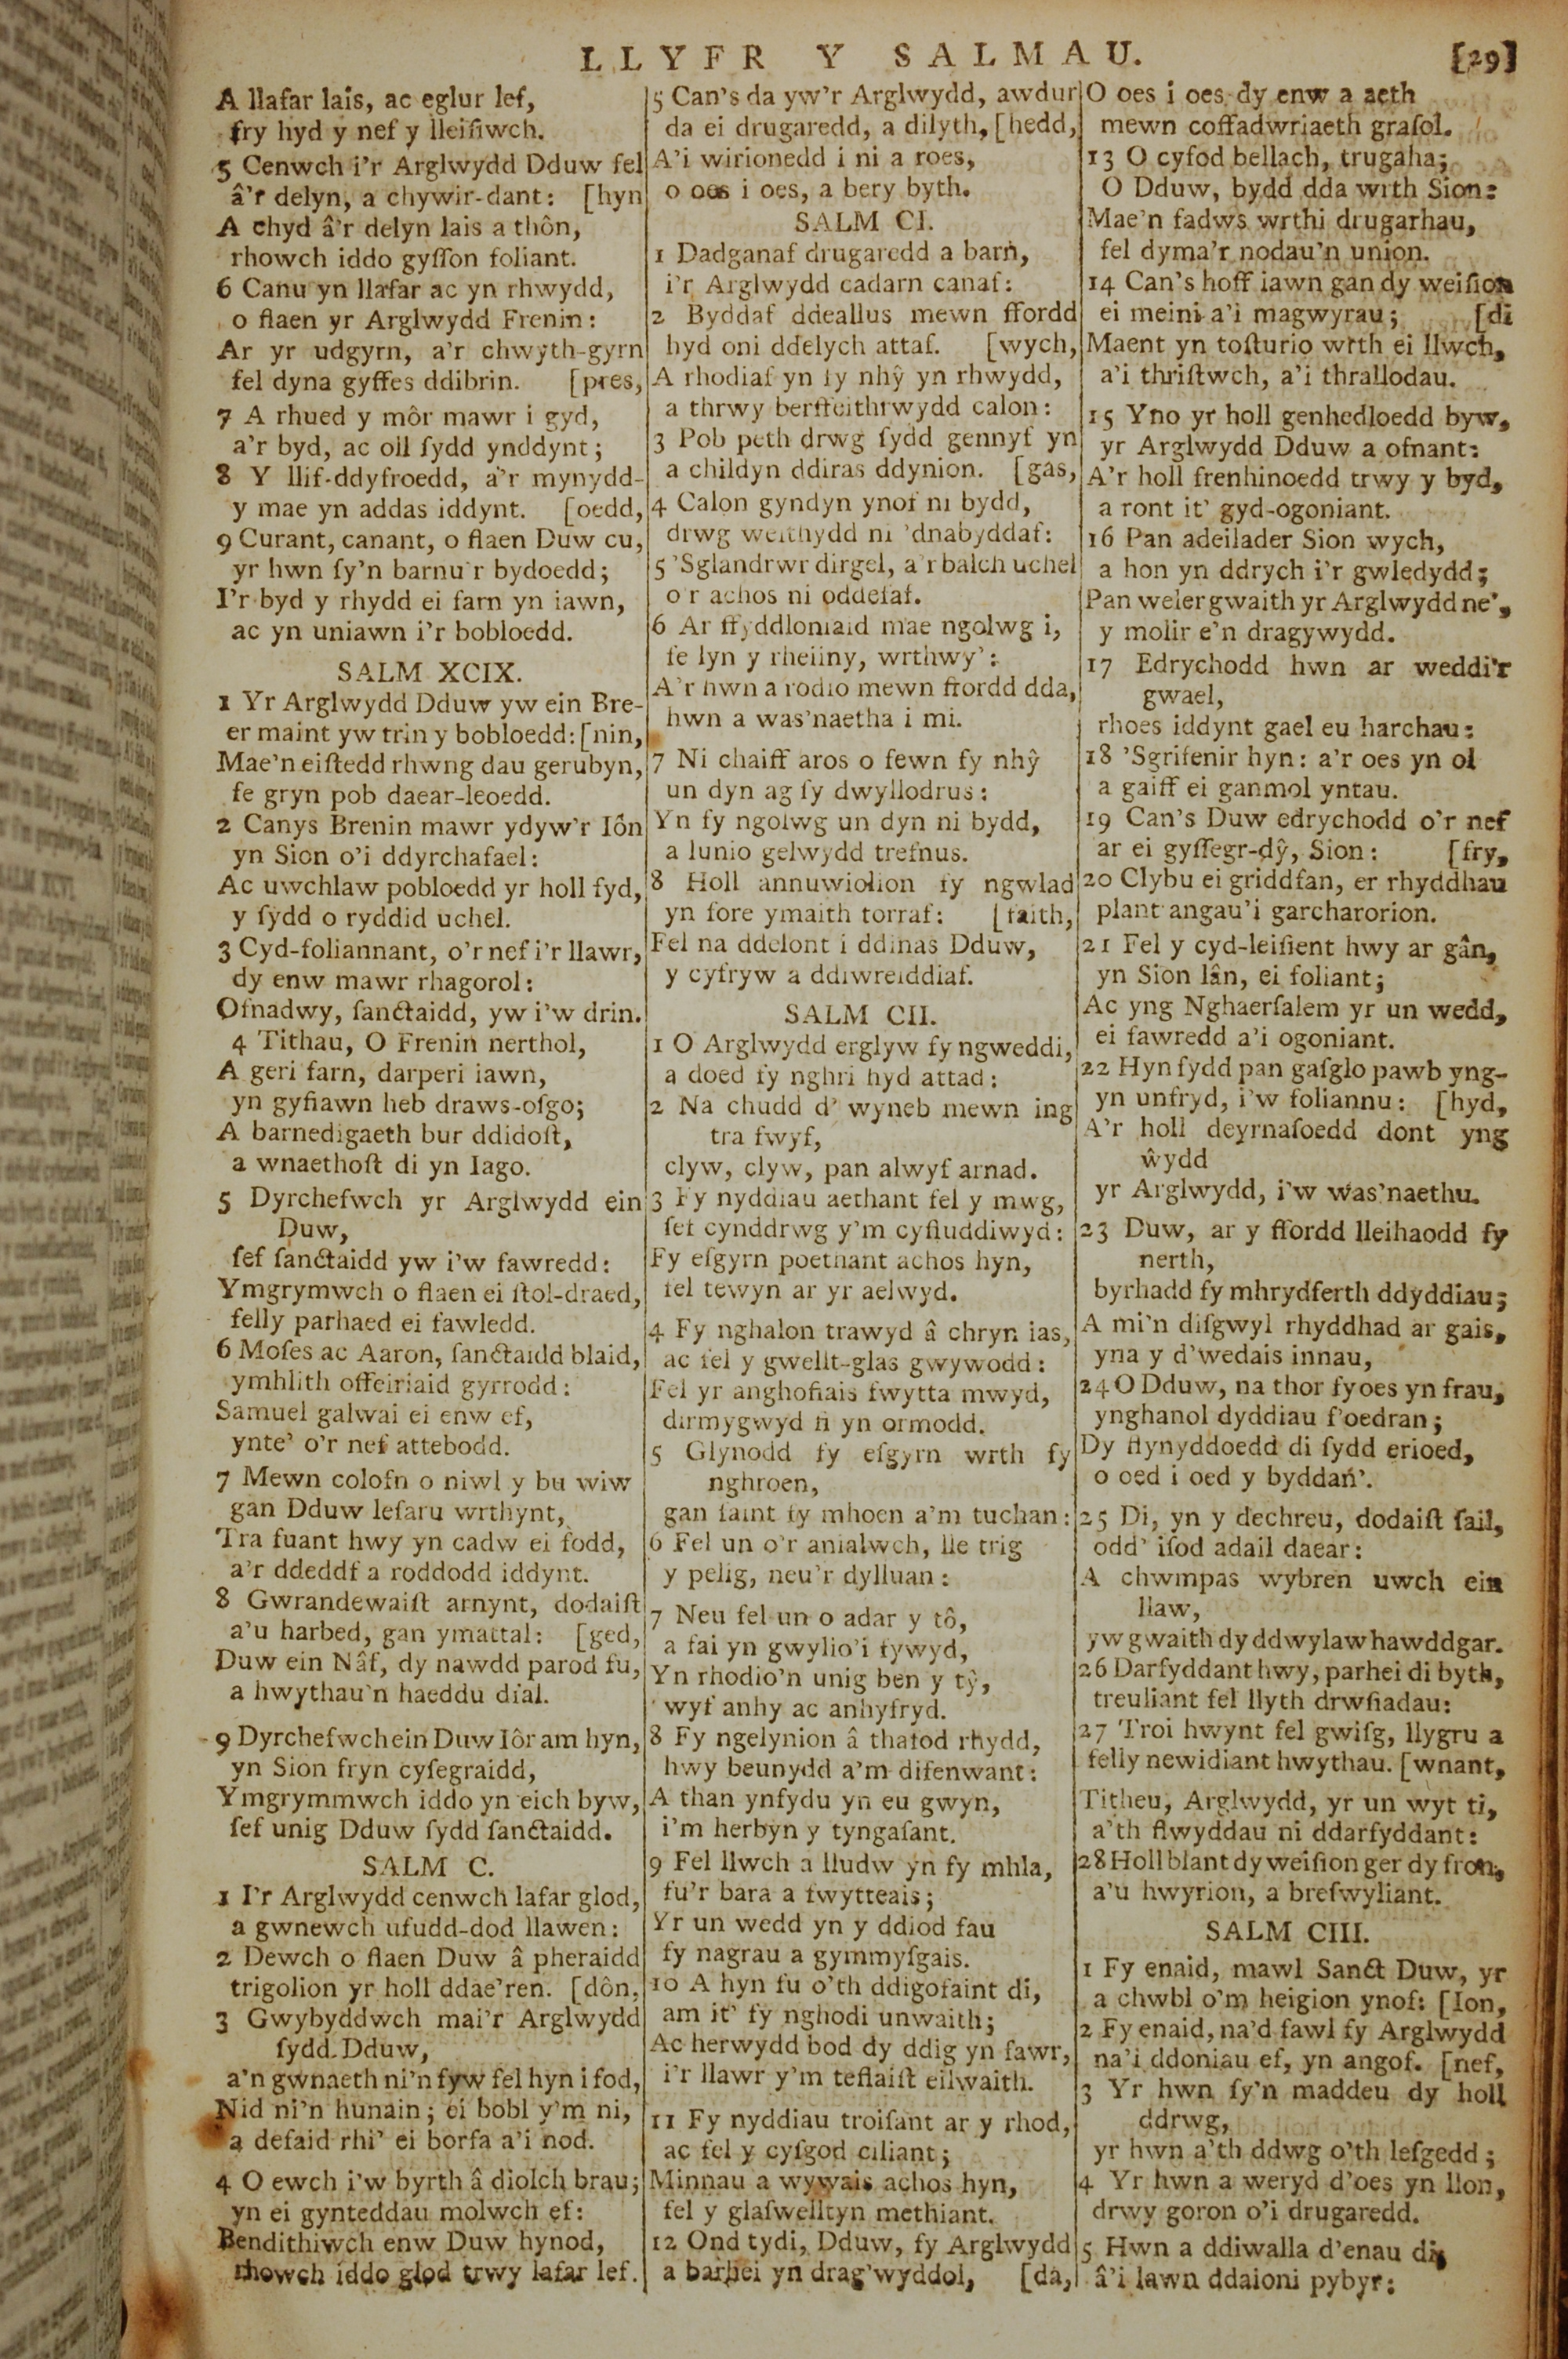 LLYFR Y SALMAU.
[29]
A llafar lais, ac eglur lef,
fry hyd y nef y lleiſiwch.
5 Cenwch i'r Arglwydd Dduw fel
â'r delyn, a chywir-dant: [hyn
A chyd â'r delyn lais a thôn,
rhowch iddo gyſſon foliant.
6 Canu yn llafar ac yn rhwydd,
o flaen yr Arglwydd Frenin:
Ar yr udgyrn, a'r chwyth-gyrn
fel dyna gyffes ddibrin. [pres,
7 A rhued y môr mawr i gyd,
a'r byd, ac oll ſydd ynddynt;
8 Y llif-ddyfroedd, a'r mynydd-
y mae yn addas iddynt. [oedd,
9 Curant, canant, o flaen Duw cu,
yr hwn ſy'n barnu'r bydoedd;
I'r byd y rhydd ei farn yn iawn,
ac yn uniawn i'r bobloedd.
SALM XCIX.
1 Yr Arglwydd Dduw yw ein Bre-
er maint yw trin y bobloedd: [nin,
Mae'n eiſtedd rhwng dau gerubyn,
fe gryn pob daear-leoedd.
2 Canys Brenin mawr ydyw'r Iôn
yn Sion o'i ddyrchafael:
Ac uwchlaw pobloedd yr holl fyd,
y ſydd o ryddid uchel.
3 Cyd-foliannant, o'r nef i'r llawr,
dy enw mawr rhagorol:
Ofnadwy, ſanctaidd, yw i'w drin.
4 Tithau, O Frenin nerthol,
A geri farn, darperi iawn,
yn gyfiawn heb draws-oſgo;
A barnedigaeth bur ddidoſt,
a wnaethoſt di yn Iago.
5 Dyrchefwch yr Arglwydd ein
Duw,
ſef ſanctaidd yw i'w fawredd:
Ymgrymwch o flaen ei ſtol-draed,
felly parhaed ei fawledd.
6 Moſes ac Aaron, ſanctaidd blaid,
ymhlith offeiriaid gyrrodd:
Samuel galwai ei enw ef,
ynte' o'r nef attebodd.
7 Mewn colofn o niwl y bu wiw
gan Dduw lefaru wrthynt,
Tra fuant hwy yn cadw ei fodd,
a'r ddeddf a roddodd iddynt.
8 Gwrandewaiſt arnynt, dodaiſt
a'u harbed, gan ymattal: [ged,
Duw ein Nâf, dy nawdd parod fu,
a hwythau'n haeddu dial.
9 Dyrchefwch ein Duw Iôr am hyn,
yn Sion fryn cyſegraidd,
Ymgrymmwch iddo yn eich byw,
ſef unig Dduw ſydd ſanctaidd.
SALM C.
1 I'r Arglwydd cenwch lafar glod,
a gwnewch ufudd-dod llawen:
2 Dewch o flaen Duw â pheraidd
trigolion yr holl ddae'ren. [dôn,
3 Gwybyddwch mai'r Arglwydd
ſydd Dduw,
a'n gwnaeth ni'n fyw fel hyn i fod,
Nid ni'n hunain; ei bobl y'm ni,
a defaid rhi' ei borfa a'i nod.
4 O ewch i'w byrth â diolch brau;
yn ei gynteddau molwch ef:
Bendithiwch enw Duw hynod,
rhowch iddo glod trwy lafar lef.
5 Can's da yw'r Arglwydd, awdur
da ei drugaredd, a dilyth, [hedd,
A'i wirionedd i ni a roes,
o oes i oes, a bery byth.
SALM CI.
1 Dadganaf drugaredd a barn,
i'r Arglwydd cadarn canaf:
2 Byddaf ddeallus mewn ffordd
hyd oni ddelych attaf. [wych,
A rhodiaf yn fy nhŷ yn rhwydd,
a thrwy berffeithrwydd calon:
3 Pob peth drwg ſydd gennyf yn
a childyn ddiras ddynion. [gas,
4 Calon gyndyn ynof ni bydd,
drwg weithydd ni 'dnabyddaf:
5 'Sglandrwr dirgel, a'r balch uchel
o'r achos ni oddefaf.
6 Ar ffyddloniaid mae ngolwg i,
fe lyn y rheiiny, wrthwy':
A'r hwn a rodio mewn ffordd dda,
hwn a was'naetha i mi.
7 Ni chaiff aros o fewn fy nhŷ
un dyn ag ſy dwyllodrus:
Yn fy ngolwg un dyn ni bydd,
a lunio gelwydd trefnus.
8 Holl annuwiolion fy ngwlad
yn fore ymaith torraf: [faith,
Fel na ddelont i ddinas Dduw,
y cyfryw a ddiwreiddiaf.
SALM CII.
1 O Arglwydd erglyw fy ngweddi,
a doed fy nghri hyd attad:
2 Na chudd d' wyneb mewn ing
tra fwyf,
clyw, clyw, pan alwyf arnad.
3 Fy nyddiau aethant fel y mwg,
ſef cynddrwg y'm cyſtuddiwyd:
Fy eſgyrn poethant achos hyn,
fel tewyn ar yr aelwyd.
4 Fy nghalon trawyd â chryn ias,
ac fel y gwellt-glas gwywodd:
Fel yr anghofiais fwytta mwyd,
dirmygwyd fi yn ormodd.
5 Glynodd fy eſgyrn wrth fy
nghroen,
gan faint fy mhoen a'm tuchan:
6 Fel un o'r anialwch, lle trig
y pelig, neu'r dylluan:
7 Neu fel un o adar y tô,
a fai yn gwylio'i fywyd,
Yn rhodio'n unig ben y tŷ,
wyf anhy ac anhyfryd.
8 Fy ngelynion â thafod rhydd,
hwy beunydd a'm difenwant:
A than ynfydu yn eu gwyn,
i'm herbyn y tyngaſant.
9 Fel llwch a lludw yn fy mhla,
fu'r bara a fwytteais;
Yr un wedd yn y ddiod fau
fy nagrau a gymmyſgais.
10 A hyn fu o'th ddigofaint di,
am it' fy nghodi unwaith;
Ac herwydd bod dy ddig yn fawr,
i'r llawr y'm teflaiſt eilwaith.
11 Fy nyddiau troiſant ar y rhod,
ac fel y cyſgod ciliant;
Minnau a wywais achos hyn,
fel y glaſwelltyn methiant.
12 Ond tydi, Dduw, fy Arglwydd
a barhei yn drag'wyddol, [da,
O oes i oes dy enw a aeth
mewn coffadwriaeth graſol.
13 O cyfod bellach, trugaha;
O Dduw, bydd dda wrth Sion:
Mae'n fadws wrthi drugarhau,
fel dyma'r nodau'n union.
14 Can's hoff iawn gan dy weiſion
ei meini a'i magwyrau; [di
Maent yn toſturio wrth ei llwch,
a'i thriſtwch, a'i thrallodau.
15 Yno yr holl genhedloedd byw,
yr Arglwydd Dduw a ofnant:
A'r holl frenhinoedd trwy y byd,
a ront it' gyd-ogoniant.
16 Pan adeilader Sion wych,
a hon yn ddrych i'r gwledydd;
Pan weler gwaith yr Arglwydd ne',
y molir e'n dragywydd.
17 Edrychodd hwn ar weddi'r
gwael,
rhoes iddynt gael eu harchau:
18 'Sgrifenir hyn: a'r oes yn ol
a gaiff ei ganmol yntau.
19 Can's Duw edrychodd o'r nef
ar ei gyſſegr-dŷ, Sion: [fry,
20 Clybu ei griddfan, er rhyddhau
plant angau'i garcharorion.
21 Fel y cyd-leiſient hwy ar gân,
yn Sion lân, ei foliant;
Ac yng Nghaerſalem yr un wedd,
ei fawredd a'i ogoniant.
22 Hyn fydd pan gaſglo pawb yng-
yn unfryd, i'w foliannu: [hyd,
A'r holl deyrnaſoedd dont yng
ŵydd
yr Arglwydd, i'w was'naethu.
23 Duw, ar y ffordd lleihaodd fy
nerth,
byrhadd fy mhrydferth ddyddiau;
A mi'n diſgwyl rhyddhad ar gais,
yna y d'wedais innau,
24 O Dduw, na thor fy oes yn frau,
ynghanol dyddiau f'oedran;
Dy flynyddoedd di ſydd erioed,
o oed i oed y byddan'.
25 Di, yn y dechreu, dodaiſt ſail,
odd' iſod adail daear:
A chwmpas wybren uwch ein
llaw,
yw gwaith dy ddwylaw hawddgar.
26 Darfyddant hwy, parhei di byth,
treuliant fel llyth drwſiadau:
27 Troi hwynt fel gwiſg, llygru a
felly newidiant hwythau. [wnant,
Titheu, Arglwydd, yr un wyt ti,
a'th flwyddau ni ddarfyddant:
28 Holl blant dy weiſion ger dy fron,
a'u hwyrion, a breſwyliant.
SALM CIII.
1 Fy enaid, mawl Sanct Duw, yr
a chwbl o'm heigion ynof: [Ion,
2 Fy enaid, na'd fawl fy Arglwydd
na'i ddoniau ef, yn angof. [nef,
3 Yr hwn ſy'n maddeu dy holl
ddrwg,
yr hwn a'th ddwg o'th leſgedd;
4 Yr hwn a weryd d'oes yn llon,
drwy goron o'i drugaredd.
5 Hwn a ddiwalla d'enau di,
â'i lawn ddaioni pybyr: